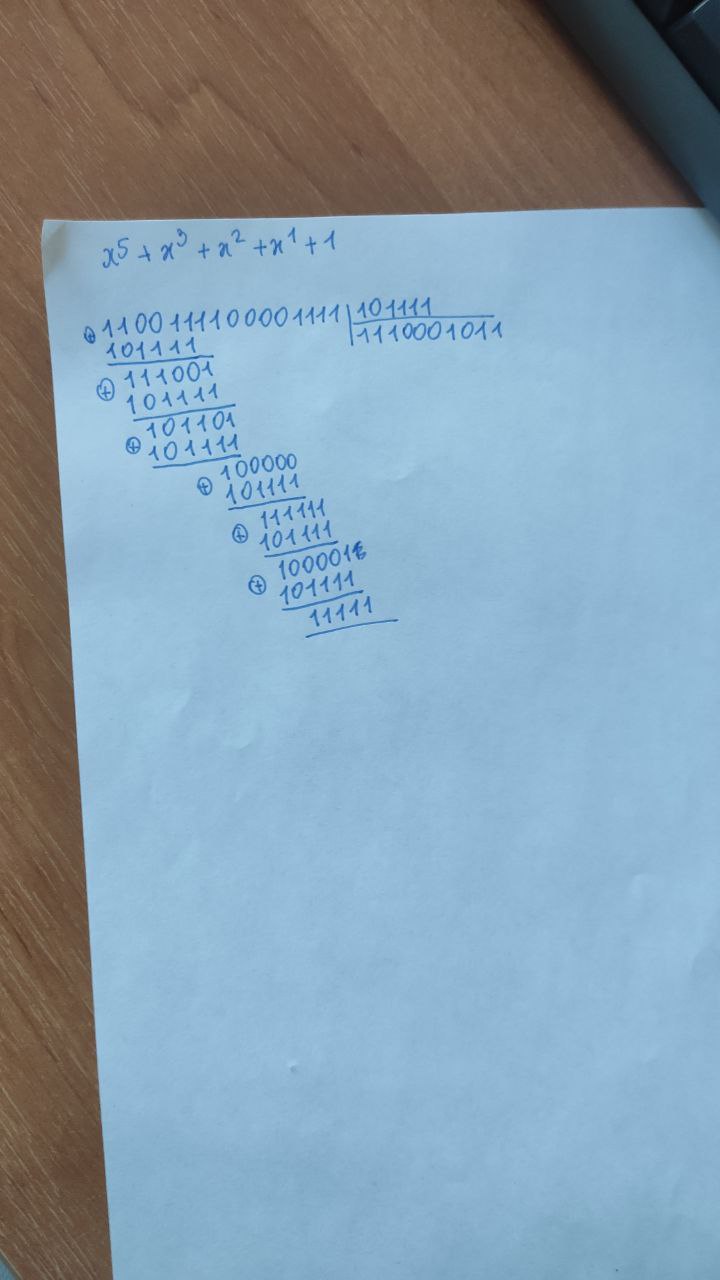 x⁵ + x³ + x² + x¹ + 1
⊕ 1100111100001111 | 101111
101111 | 1110001011
111001
⊕ 101111
101101
⊕ 101111
100000
⊕ 101111
111111
⊕ 101111
100001
⊕ 101111
11111